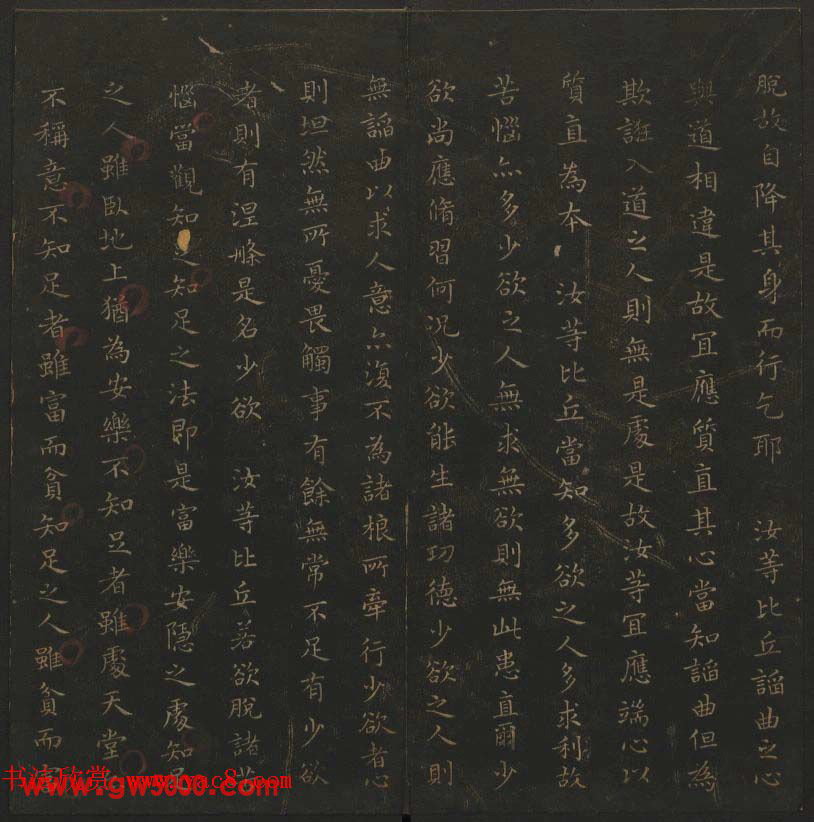 脫故自降其身而行乞耶 汝等比丘諂曲之心
與道相違是故宜應質直其心當知諂曲但為
欺誑入道之人則無是處是故汝等宜應端心以
質直為本 汝等比丘當知多欲之人多求利故
苦惱亦多少欲之人無求無欲則無此患直爾少
欲尚應脩習何況少欲能生諸功德少欲之人則
無諂曲以求人意亦復不為諸根所牽行少欲者心
則坦然無所憂畏觸事有餘無常不足有少欲
者則有涅槃是名少欲 汝等比丘若欲脫諸苦
惱當觀知足知足之法即是富樂安隱之處知足
之人雖臥地上猶為安樂不知足者雖處天堂
不稱意不知足者雖富而貧知足之人雖貧而富
书法欣赏 www.yac8.com
www.gw5000.com